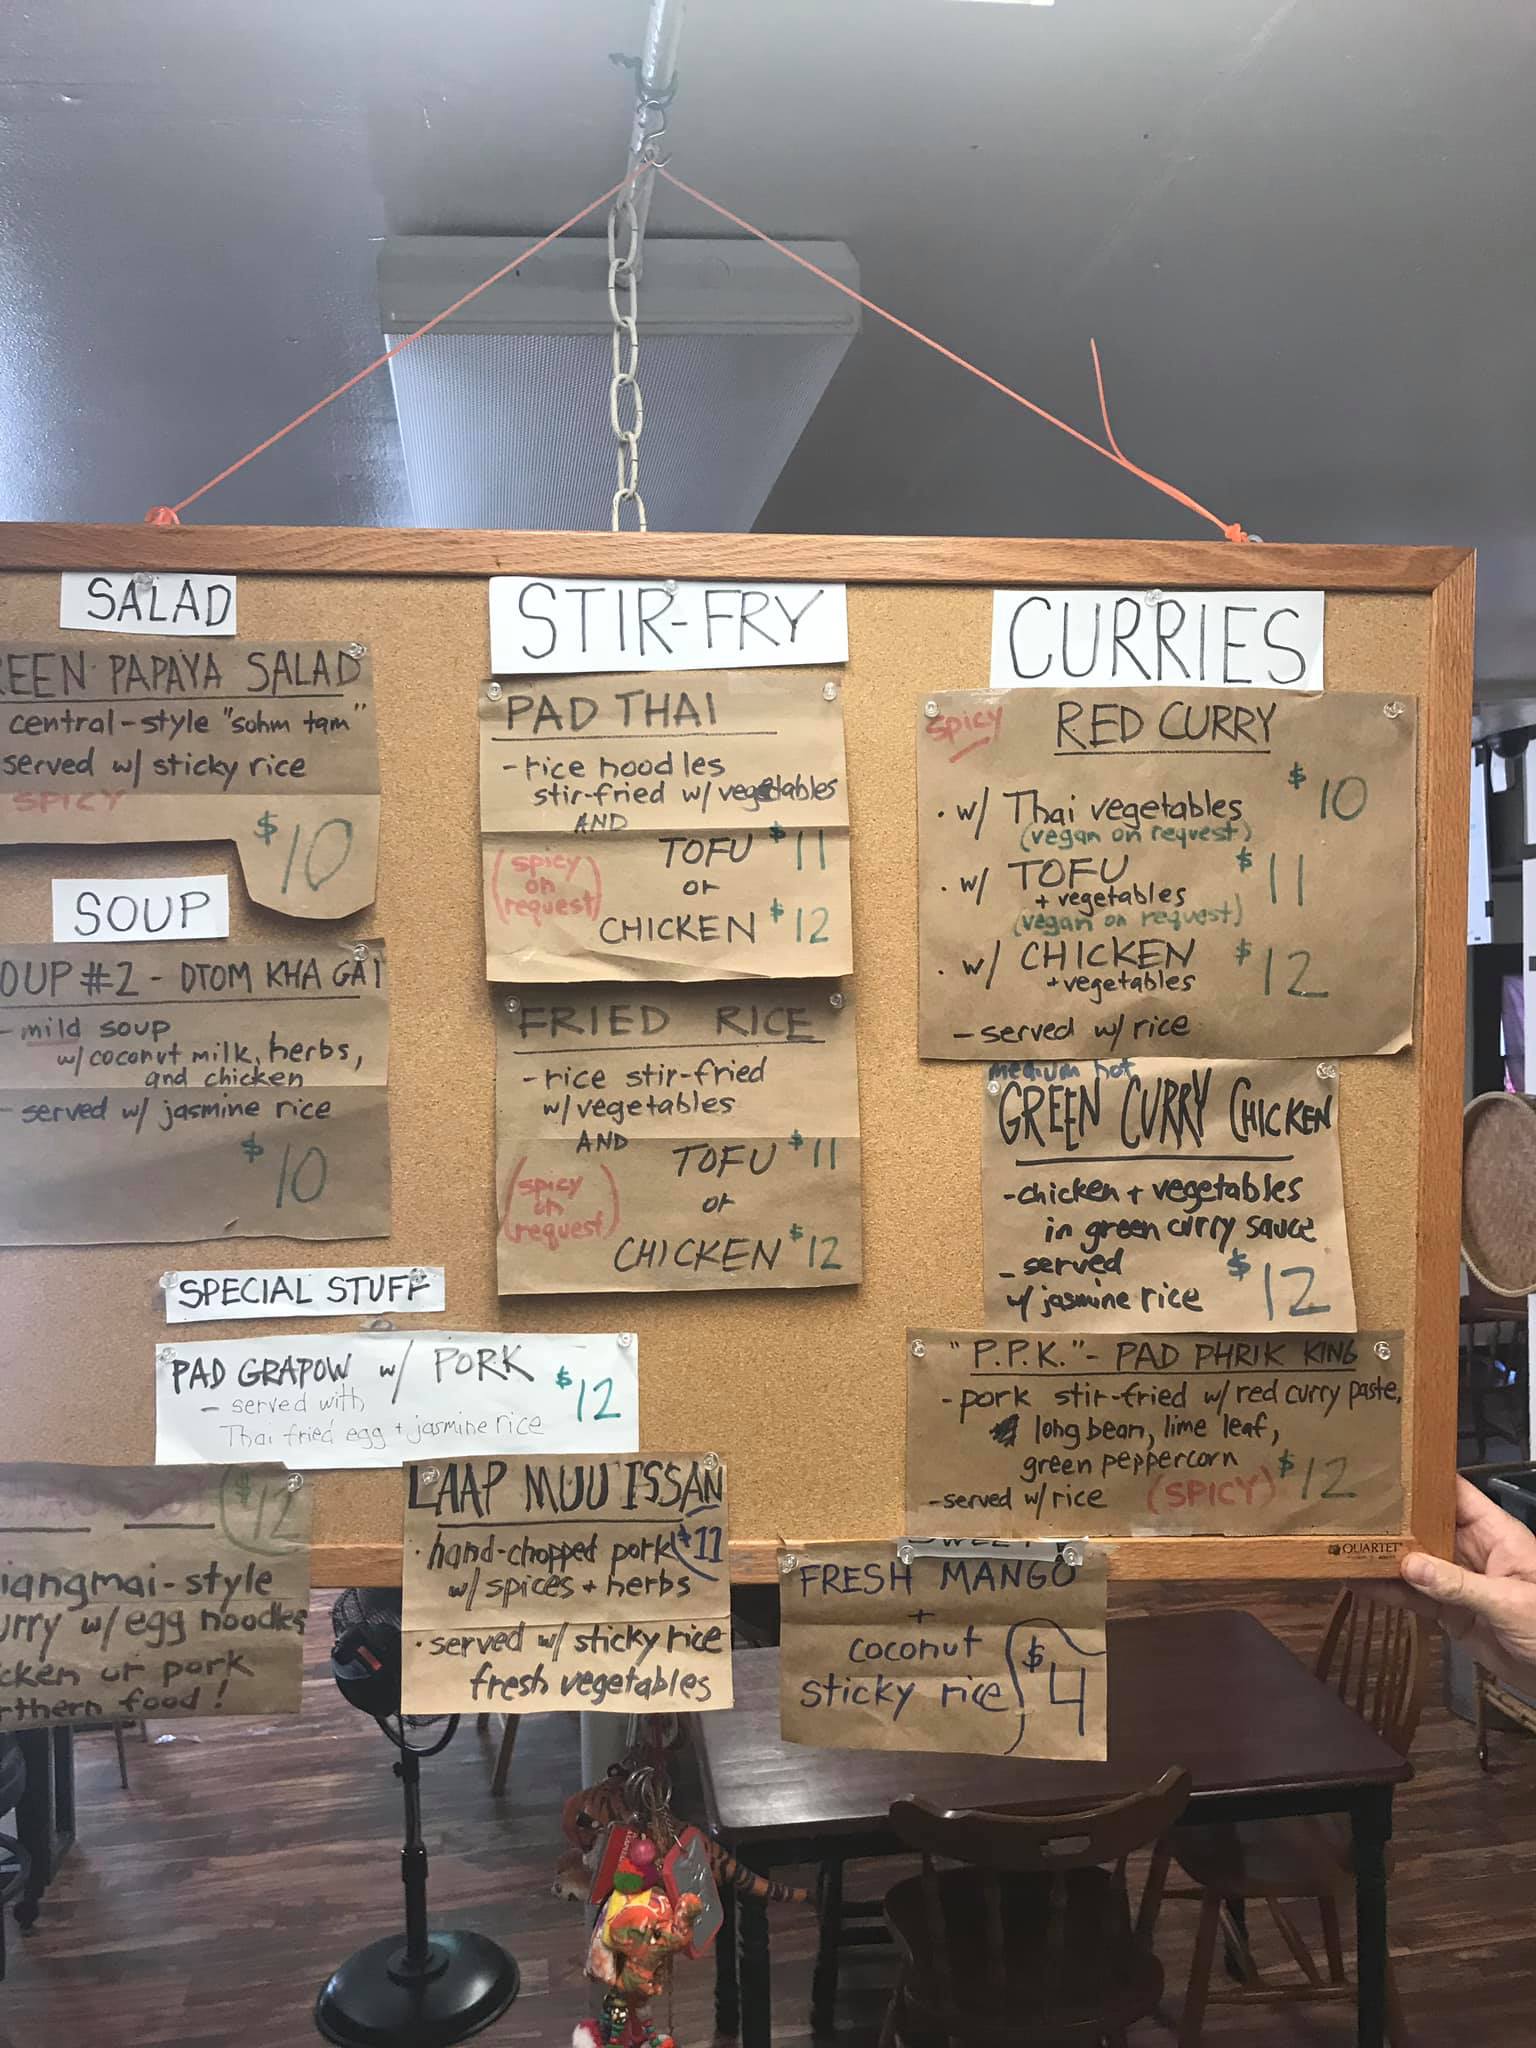 SALAD
EEN PAPAYA SALAD
central-style "sohm tam"
served w/ sticky rice
SPICY
$10
SOUP
OUP #2 - DTOM KHA GAI
- mild soup
w/ coconut milk, herbs,
and chicken
- served w/ jasmine rice
$10
STIR-FRY
PAD THAI
- rice noodles
stir-fried w/ vegetables
AND
(spicy on request)
TOFU $11
or
CHICKEN $12
FRIED RICE
- rice stir-fried
w/ vegetables
AND
(spicy on request)
TOFU $11
or
CHICKEN $12
CURRIES
spicy
RED CURRY
• w/ Thai vegetables $10
(vegan on request)
• w/ TOFU $11
+ vegetables
(vegan on request)
• w/ CHICKEN $12
+ vegetables
- served w/ rice
medium hot
GREEN CURRY CHICKEN
- chicken + vegetables
in green curry sauce
- served
w/ jasmine rice $12
"P.P.K." - PAD PHRIK KING
- pork stir-fried w/ red curry paste,
long bean, lime leaf,
green peppercorn
- served w/ rice (SPICY) $12
QUARTET
SPECIAL STUFF
PAD GRAPOW w/ PORK $12
- served with
Thai fried egg + jasmine rice
$12
iangmai-style
urry w/ egg noodles
cken or pork
rthern food!
LAAP MUU ISSAN
• hand-chopped pork $11
w/ spices + herbs
• served w/ sticky rice
fresh vegetables
FRESH MANGO
+
coconut
sticky rice $4